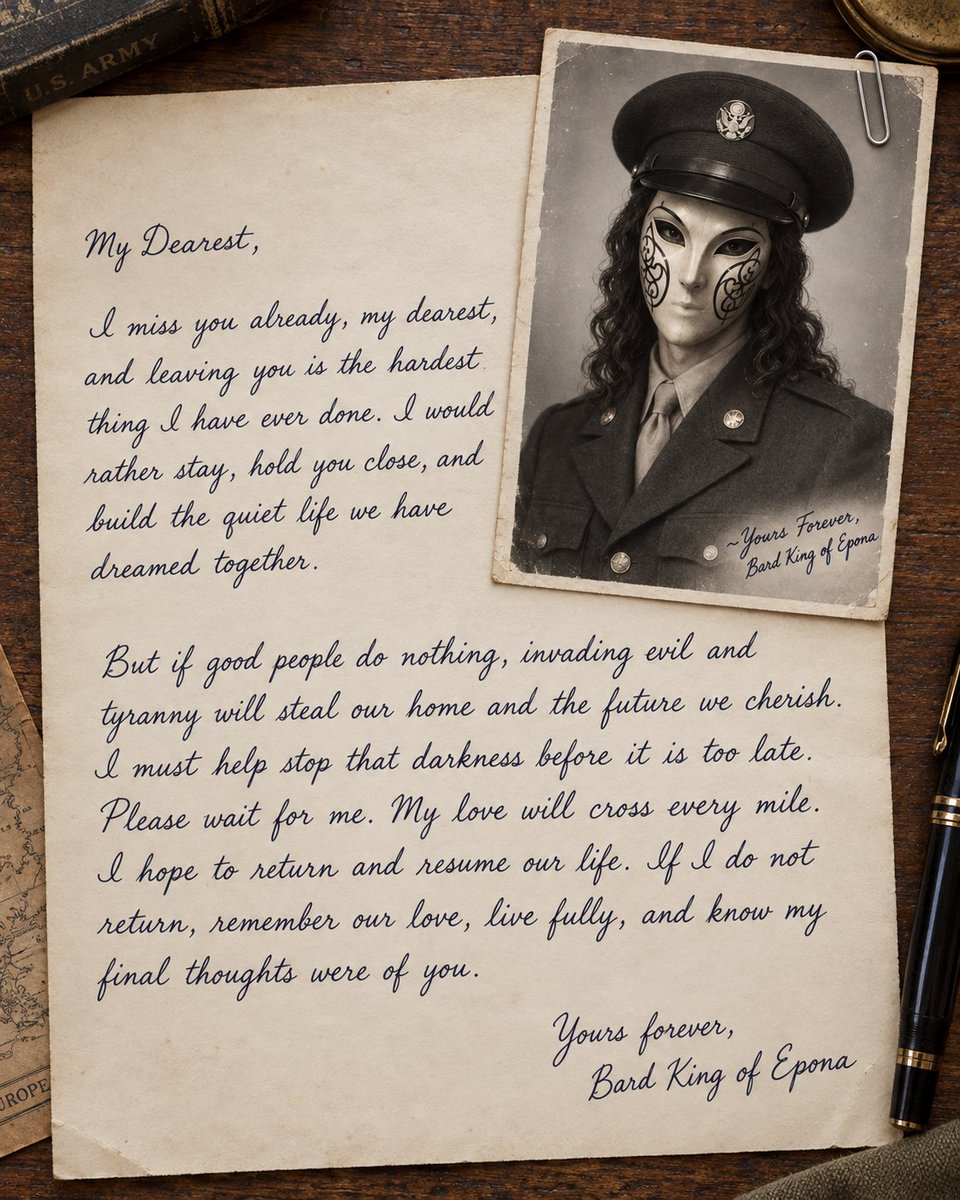 U.S. ARMY
My Dearest,
I miss you already, my dearest,
and leaving you is the hardest
thing I have ever done. I would
rather stay, hold you close, and
build the quiet life we have
dreamed together.
~Yours Forever,
Bard King of Epona
But if good people do nothing, invading evil and
tyranny will steal our home and the future we cherish.
I must help stop that darkness before it is too late.
Please wait for me. My love will cross every mile.
I hope to return and resume our life. If I do not
return, remember our love, live fully, and know my
final thoughts were of you.
Yours forever,
Bard King of Epona